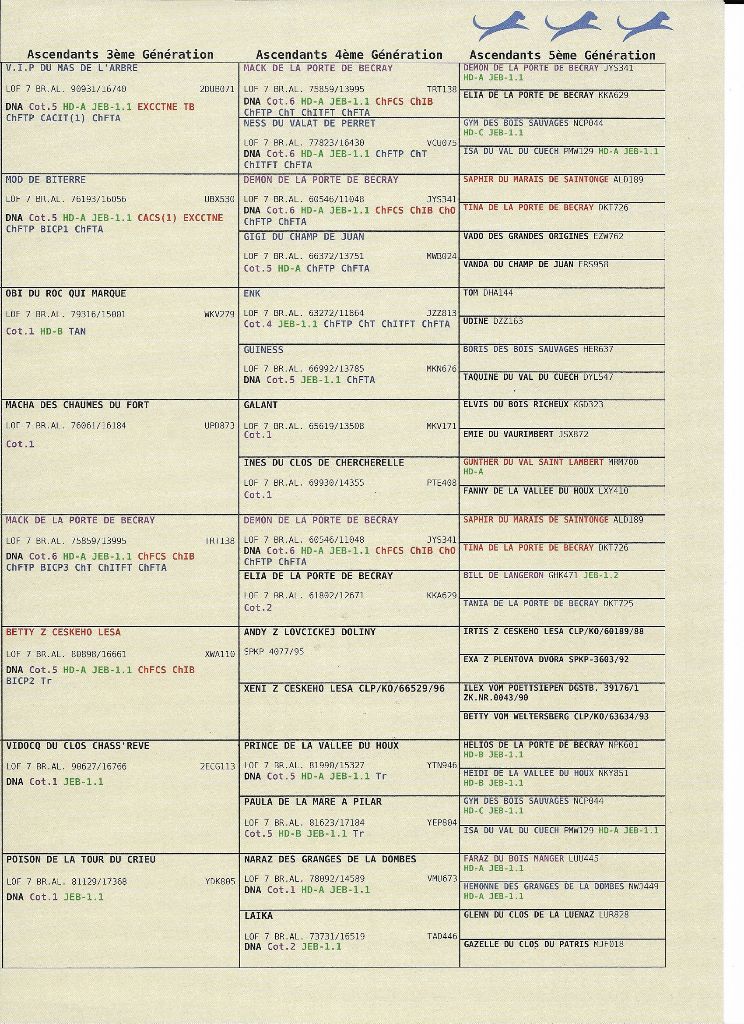 Ascendants 3ème Génération
V.I.P DU MAS DE L'ARBRE
LOF 7 BR.AL. 90931/16740 2DUB071
DNA Cot.5 HD-A JEB-1.1 EXCCTNE TB
ChFTP CACIT(1) ChFTA
MOD DE BITERRE
LOF 7 BR.AL. 76193/16056 UBX530
DNA Cot.5 HD-A JEB-1.1 CACS(1) EXCCTNE
ChFTP BICP1 ChFTA
OBI DU ROC QUI MARQUE
LOF 7 BR.AL. 79316/15001 WKV279
Cot.1 HD-B TAN
MACHA DES CHAUMES DU FORT
LOF 7 BR.AL. 76061/16184 UPD873
Cot.1
MACK DE LA PORTE DE BECRAY
LOF 7 BR.AL. 75859/13995 TRT138
DNA Cot.6 HD-A JEB-1.1 ChFCS ChIB
ChFTP BICP3 ChT ChITFT ChFTA
BETTY Z CESKEHO LESA
LOF 7 BR.AL. 80898/16661 XWA110
DNA Cot.5 HD-A JEB-1.1 ChFCS ChIB
BICP2 Tr
VIDOCQ DU CLOS CHASS'REVE
LOF 7 BR.AL. 90627/16766 2ECG113
DNA Cot.1 JEB-1.1
POISON DE LA TOUR DU CRIEU
LOF 7 BR.AL. 81129/17368 YDK805
DNA Cot.1 JEB-1.1
Ascendants 4ème Génération
MACK DE LA PORTE DE BECRAY
LOF 7 BR.AL. 75859/13995 TRT138
DNA Cot.6 HD-A JEB-1.1 ChFCS ChIB
ChFTP ChT ChITFT ChFTA
NESS DU VALAT DE PERRET
LOF 7 BR.AL. 77823/16430 VCU075
DNA Cot.6 HD-A JEB-1.1 ChFTP ChT
ChITFT ChFTA
DEMON DE LA PORTE DE BECRAY
LOF 7 BR.AL. 60546/11048 JYS341
DNA Cot.6 HD-A JEB-1.1 ChFCS ChIB ChO
ChFTP ChFTA
GIGI DU CHAMP DE JUAN
LOF 7 BR.AL. 66372/13751 MWB024
Cot.5 HD-A ChFTP ChFTA
ENK
LOF 7 BR.AL. 63272/11864 JZZ813
Cot.4 JEB-1.1 ChFTP ChT ChITFT ChFTA
GUINESS
LOF 7 BR.AL. 66992/13785 MKN676
DNA Cot.5 JEB-1.1 ChFTA
GALANT
LOF 7 BR.AL. 65619/13508 MKV171
Cot.1
INES DU CLOS DE CHERCHERELLE
LOF 7 BR.AL. 69930/14355 PTE408
Cot.1
DEMON DE LA PORTE DE BECRAY
LOF 7 BR.AL. 60546/11048 JYS341
DNA Cot.6 HD-A JEB-1.1 ChFCS ChIB ChO
ChFTP ChFTA
ELIA DE LA PORTE DE BECRAY
LOF 7 BR.AL. 61802/12671 KKA629
Cot.2
ANDY Z LOVCICKEJ DOLINY
SPKP 4077/95
XENI Z CESKEHO LESA CLP/KO/66529/96
PRINCE DE LA VALLEE DU HOUX
LOF 7 BR.AL. 81990/15327 YTN946
DNA Cot.5 HD-A JEB-1.1 Tr
PAULA DE LA MARE A PILAR
LOF 7 BR.AL. 81623/17184 YEP804
Cot.5 HD-B JEB-1.1 Tr
NARAZ DES GRANGES DE LA DOMBES
LOF 7 BR.AL. 78092/14589 VMU673
DNA Cot.1 HD-A JEB-1.1
LAIKA
LOF 7 BR.AL. 73731/16519 TAD446
DNA Cot.2 JEB-1.1
Ascendants 5ème Génération
DEMON DE LA PORTE DE BECRAY JYS341
HD-A JEB-1.1
ELIA DE LA PORTE DE BECRAY KKA629
GYM DES BOIS SAUVAGES NCP044
HD-C JEB-1.1
ISA DU VAL DU CUECH PMW129 HD-A JEB-1.1
SAPHIR DU MARAIS DE SAINTONGE ALD189
TINA DE LA PORTE DE BECRAY DKT726
VADO DES GRANDES ORIGINES EZW762
VANDA DU CHAMP DE JUAN ERS958
TOM DHA144
UDINE DZZ163
BORIS DES BOIS SAUVAGES HER637
TAQUINE DU VAL DU CUECH DYL547
ELVIS DU BOIS RICHEUX KGD323
EMIE DU VAURIMBERT JSX872
GUNTHER DU VAL SAINT LAMBERT MRM700
HD-A
FANNY DE LA VALLEE DU HOUX LXY410
SAPHIR DU MARAIS DE SAINTONGE ALD189
TINA DE LA PORTE DE BECRAY DKT726
BILL DE LANGERON GHK471 JEB-1.2
TANIA DE LA PORTE DE BECRAY DKT725
IRTIS Z CESKEHO LESA CLP/KO/60189/88
EXA Z PLENTOVA DVORA SPKP-3603/92
ILEX VOM POETTSIEPEN DGSTB. 39176/1
ZK.NR.0043/90
BETTY VOM WELTERSBERG CLP/KO/63634/93
HELIOS DE LA PORTE DE BECRAY NPK601
HD-B JEB-1.1
HEIDI DE LA VALLEE DU HOUX NKY851
HD-B JEB-1.1
GYM DES BOIS SAUVAGES NCP044
HD-C JEB-1.1
ISA DU VAL DU CUECH PMW129 HD-A JEB-1.1
FARAZ DU BOIS MANGER LUU445
HD-A JEB-1.1
HEMONNE DES GRANGES DE LA DOMBES NWJ449
HD-A JEB-1.1
GLENN DU CLOS DE LA LUENAZ LUR828
GAZELLE DU CLOS DU PATRIS MJF018